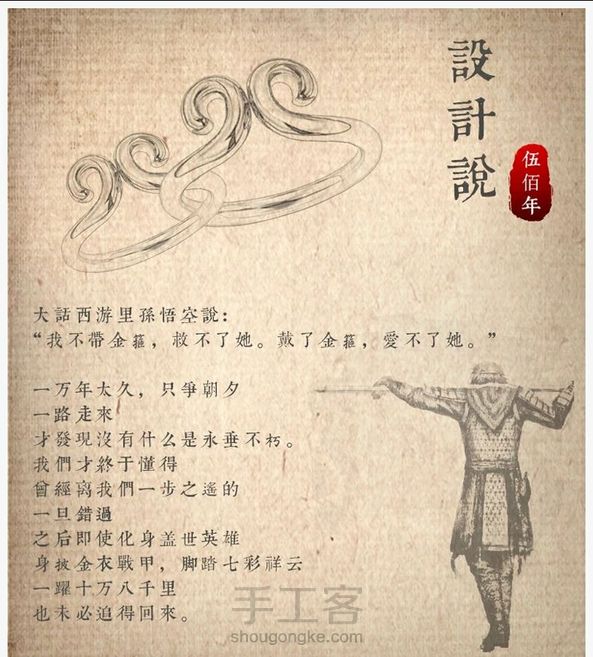 設計說
伍佰年
大話西游里孫悟空說：
“我不帶金箍，救不了她。戴了金箍，愛不了她。”
一万年太久，只爭朝夕
一路走來
才發現沒有什么是永垂不朽。
我們才終于懂得
曾經离我們一步之遙的
一旦錯過
之后即使化身盖世英雄
身披金衣戰甲，脚踏七彩祥云
一躍十万八千里
也未必追得回來。
手工客
shougongke.com